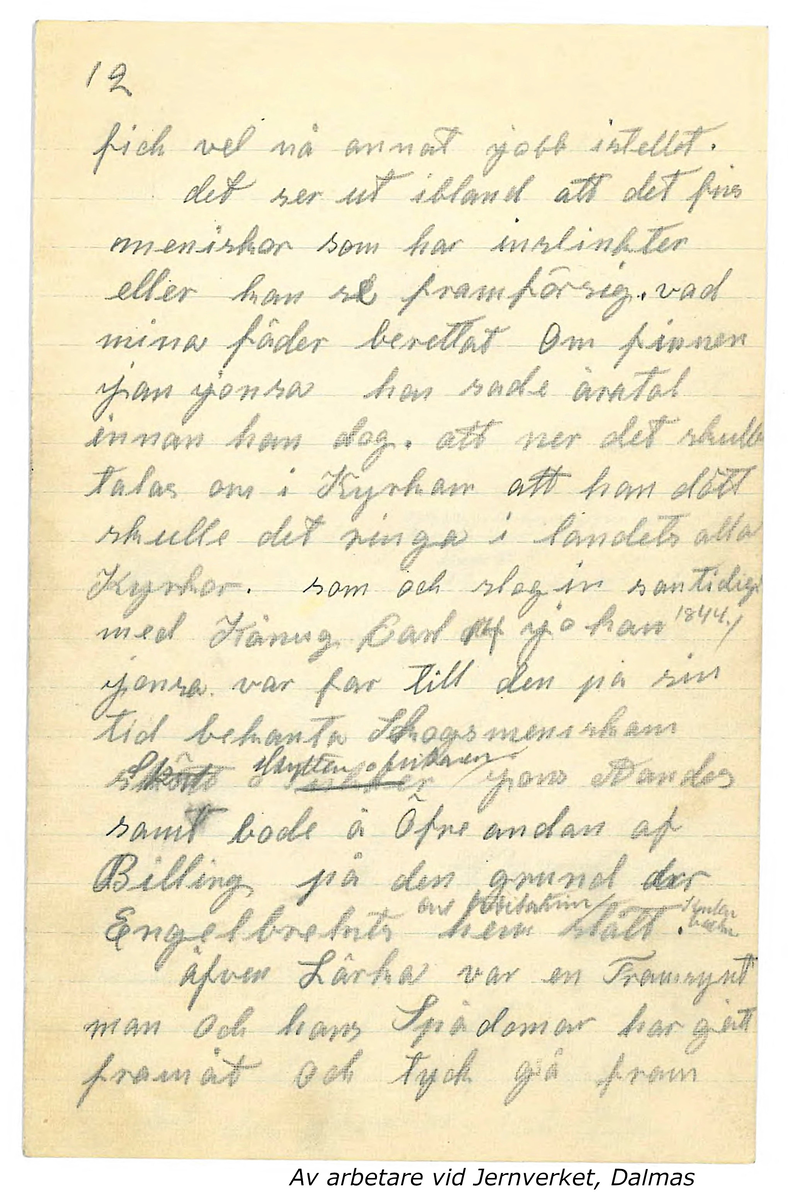 12
fich vel nå annat yobb istellet.
det ser ut ibland att det fins
meniskor som har inslinkter
eller kan se framförsig. vad
mina fäder berettat Om finnen
yan yonsa han sade åratal
innan han dog. att ner det skulle
talas om i Kyrkan att han dött
skulle det ringa i landets alla
Kyrkor. som och slog in samtidigt
med Konug Carl yohan 1844./
yonsa. var far till den på sin
tid bekanta Skogsmeniskan
yons Aandes
samt bode å Öfre andan af
Billing på den grund der
Engelbrekts hem stått.
äfven Lärka var en Framsynt
man och hans Spådomar har gått
framåt och tyck gå fram
Av arbetare vid Jernverket, Dalmas